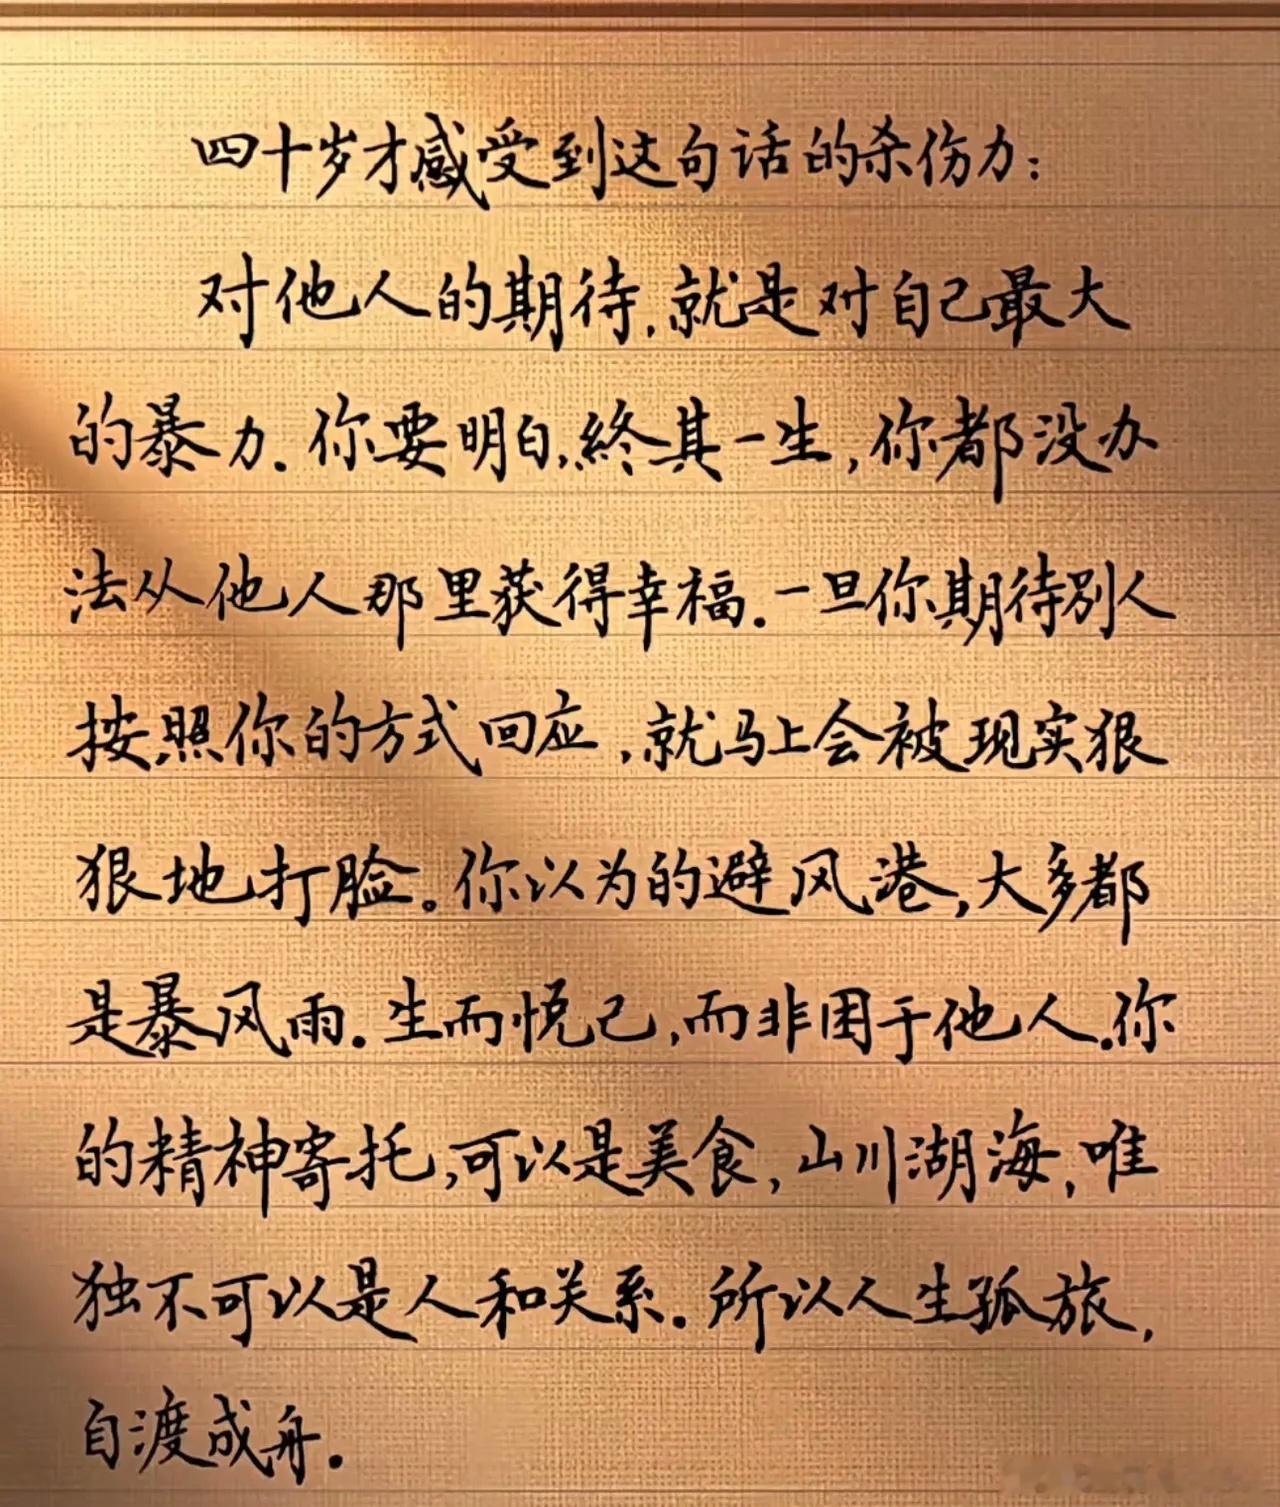 四十岁才感受到这句话的杀伤力：
对他人的期待，就是对自己最大
的暴力．你要明白，终其一生，你都没办
法从他人那里获得幸福．一旦你期待别人
按照你的方式回应，就马上会被现实狠
狠地打脸。你以为的避风港，大多都
是暴风雨．生而悦己，而非困于他人．你
的精神寄托，可以是美食，山川湖海，唯
独不可以是人和关系．所以人生孤旅，
自渡成舟．